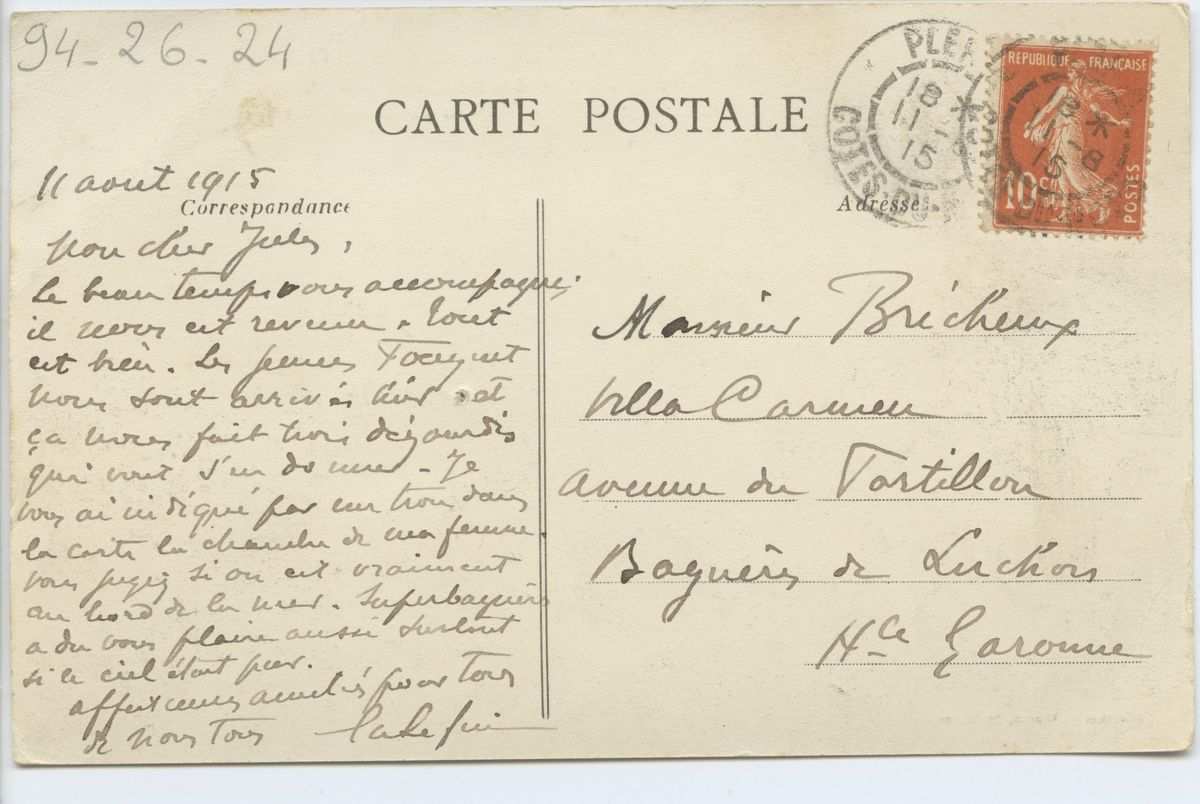 94-26-24
CARTE POSTALE
PLE
18 *
11-
15
COTES-DU-N
REPUBLIQUE FRANÇAISE
8 *
11-8
15
10 c
POSTES
11 aout 1915
Correspondance
Adresse
Mon cher Jules,
Le beau temps vous accompagne;
il nous est revenu. Tout
est bien. Les jeunes Fouquet
nous sont arrivés hier et
ça nous fait trois dégourdis
qui vont s'en donner - Je
vous ai indiqué par un trou dans
la carte la chambre de ma femme.
vous jugez si on est vraiment
au bord de la mer. Superbagnères
a du vous plaire aussi surtout
si le ciel était pur.
affectueuses amitiés pour tous
de nous tous
Monsieur Bricheux
Villa Carmen
avenue du Tortillon
Bagnères de Luchon
Hce Garonne